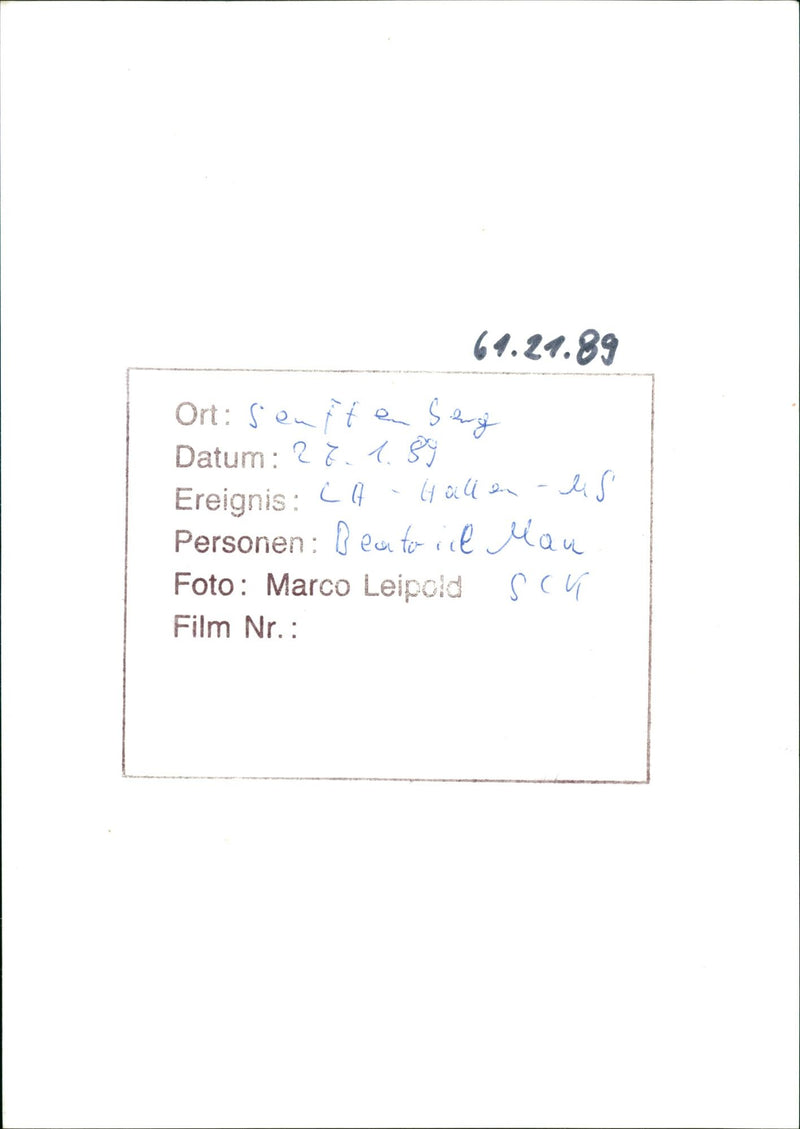 61.21.89
Ort: Senftenberg
Datum: 27.1.89
Ereignis: LA - Hallen - MS
Personen: Beatrice Mau
Foto: Marco Leipold SCK
Film Nr.: